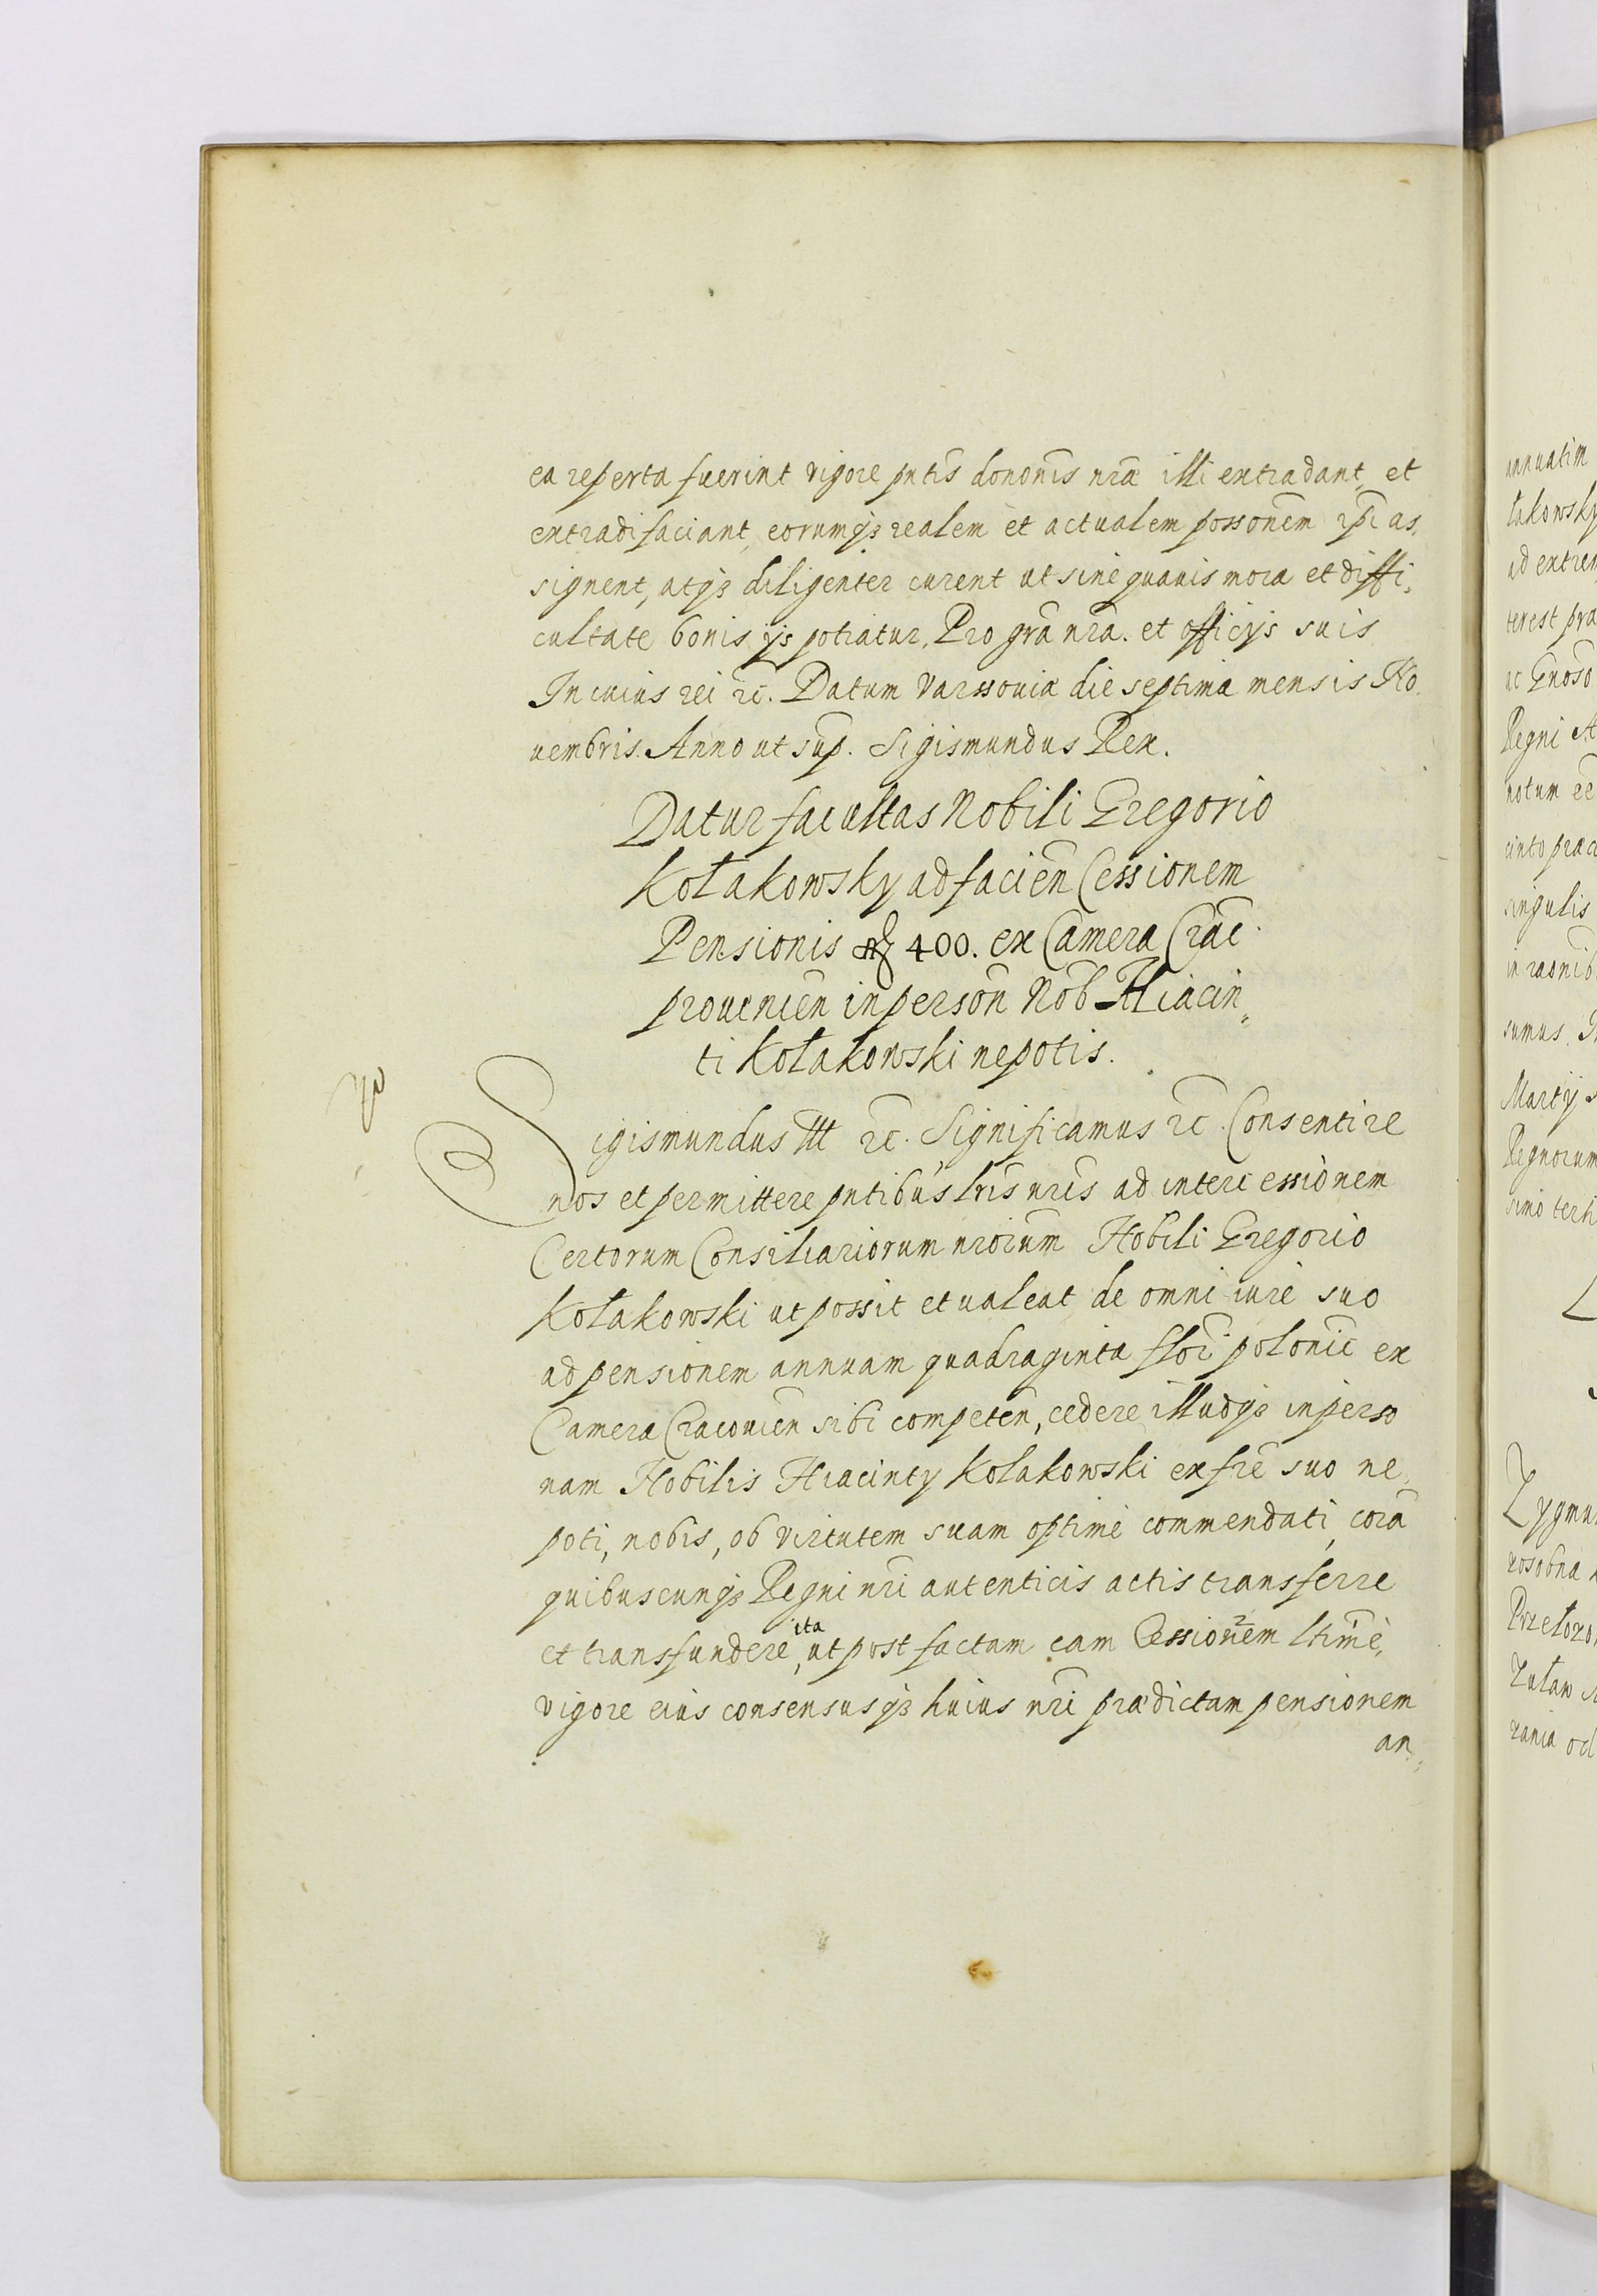 ea reperta fuerint vigore pntis dononis nrae illi extradant, et
extradi faciant, eorumqз realem et actualem possonem ipi as,
signent, atqз diligenter curent ut sine quavis mora et diffi,
cultate bonis ijs potiatur. Pro gra nra. et officijs suis
In cuius rei rc. Datum Varssoviae die septima mensis No,
vembris. Anno ut sup. Sigismundus Rex.
Datur facultas Nobili Gregorio
Kołakowsky ad facien Cessionem
Pensionis 400. ex Camera Crac.
provenien in person Nob Hiacin„
ti Kołakowski nepotis.
Sigismundus III rc. Significamus rc. Consentire
nos et permittere pntibus lris nris ad intercessionem
Certorum Consiliariorum nrorum Nobili Gregorio
Kołakowski ut possit et valeat de omni iure suo
ad pensionem annuam quadraginta flor polonic ex
Camera Cracovien sibi competen, cedere illudqз in perso
nam Nobilis Hiacinty Kołakowski ex fre suo ne,
poti, nobis, ob virtutem suam optime commendati, cora
quibuscunqз Regni nri autenticis actis transferre
et transfundere, ita ut post factam eam Cessionem ltime,
vigore eius consensusqз huius nri praedictam pensionem
an„
annuatim
łakowsky
ad extrem
terest prae
ac Gnoso
Regni
notum ee
cinto prae
singulis
in raonib
sumus.
Martij
Regnorum
simo terti
Zygmun
rosobna
Przełozo
Zuław
rania od